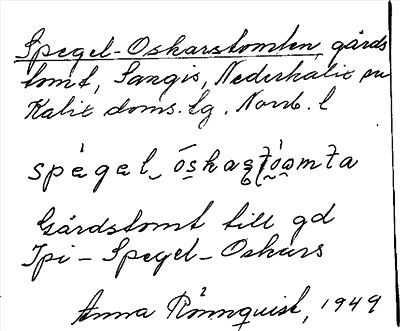 Spegel-Oskarstomten, gårds
tomt, Sangis, Nederkalix sn
Kalix doms.lg. Norrb. l
Gårdstomt till gd
Ipi-Spegel-Oskars
Anna Rönnquist, 1949